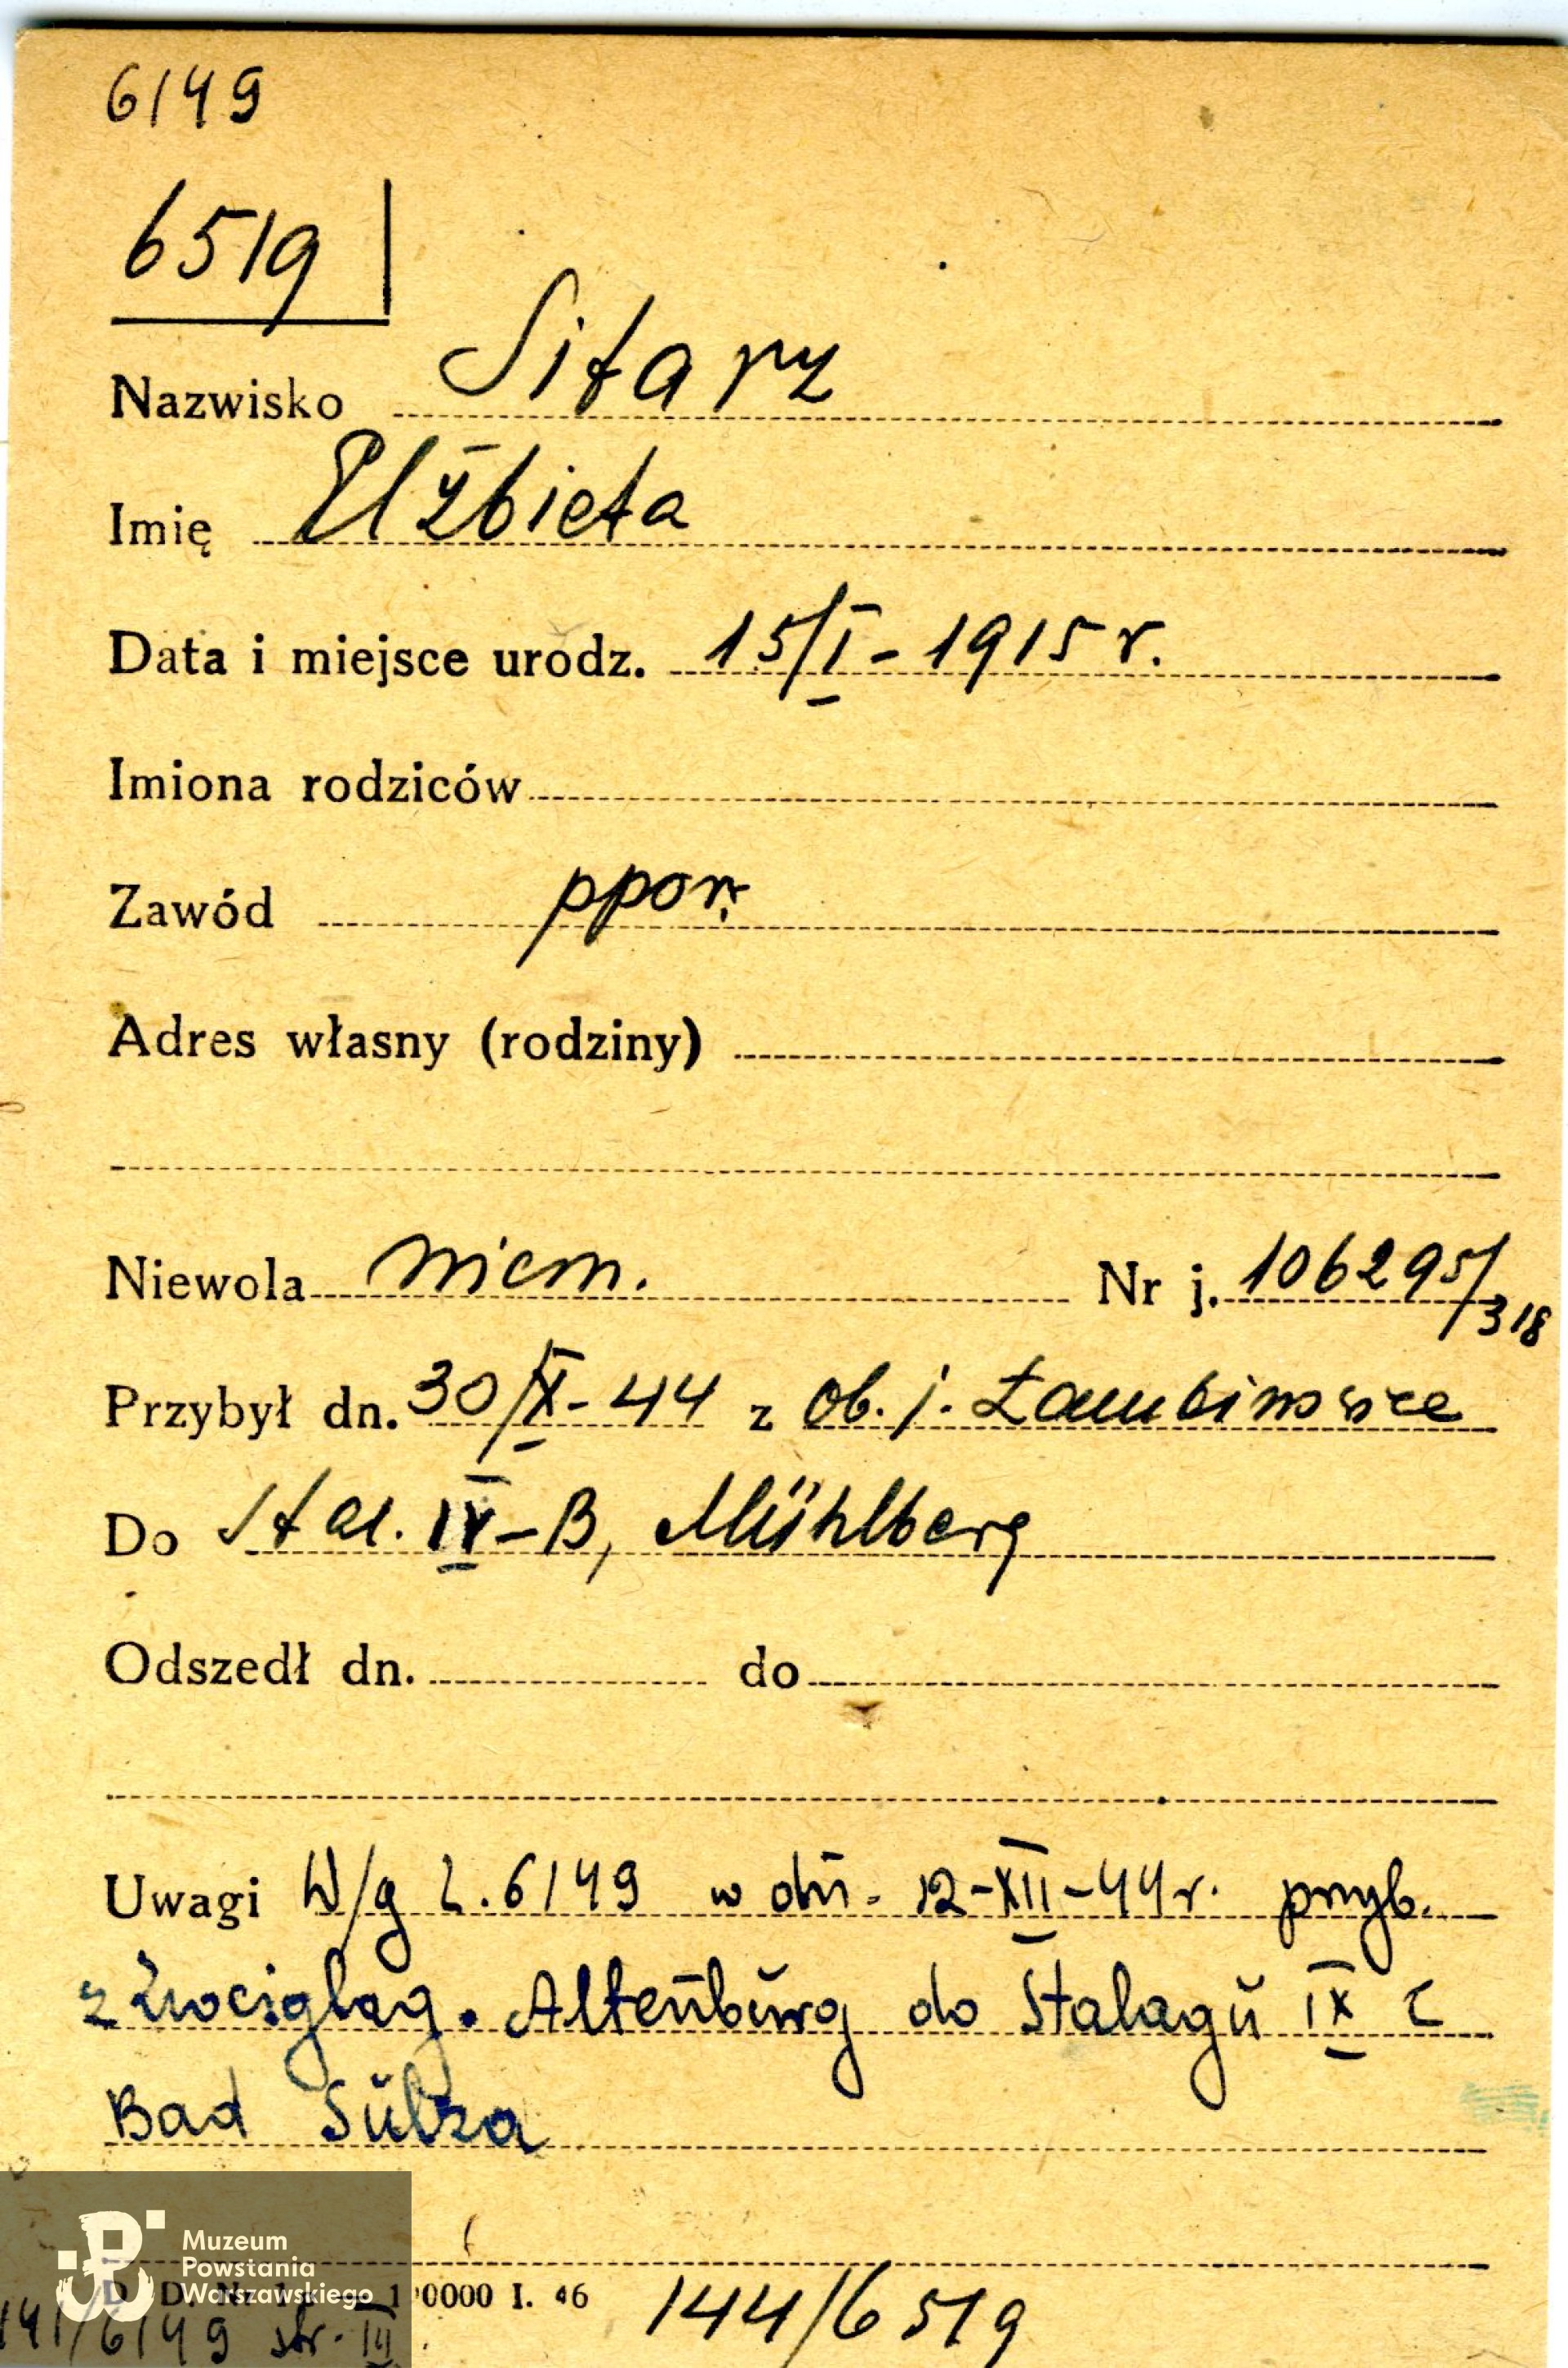 6149
6519
Nazwisko Sitarz
Imię Elżbieta
Data i miejsce urodz. 15/I - 1915 r.
Imiona rodziców
Zawód ppor.
Adres własny (rodziny)
Niewola niem. Nr j. 106295/318
Przybył dn. 30/X - 44 z ob. j. Łambinowice
Do Stal. IV-B, Mühlberg
Odszedł dn. do
Uwagi W/g L. 6149 w dn. 12-XII-44r. przyb.
z Altenburg do Stalagu IX C
Bad Sulza
Muzeum
Powstania
Warszawskiego
0000 I. 46
141/6149 str. III.
144/6519